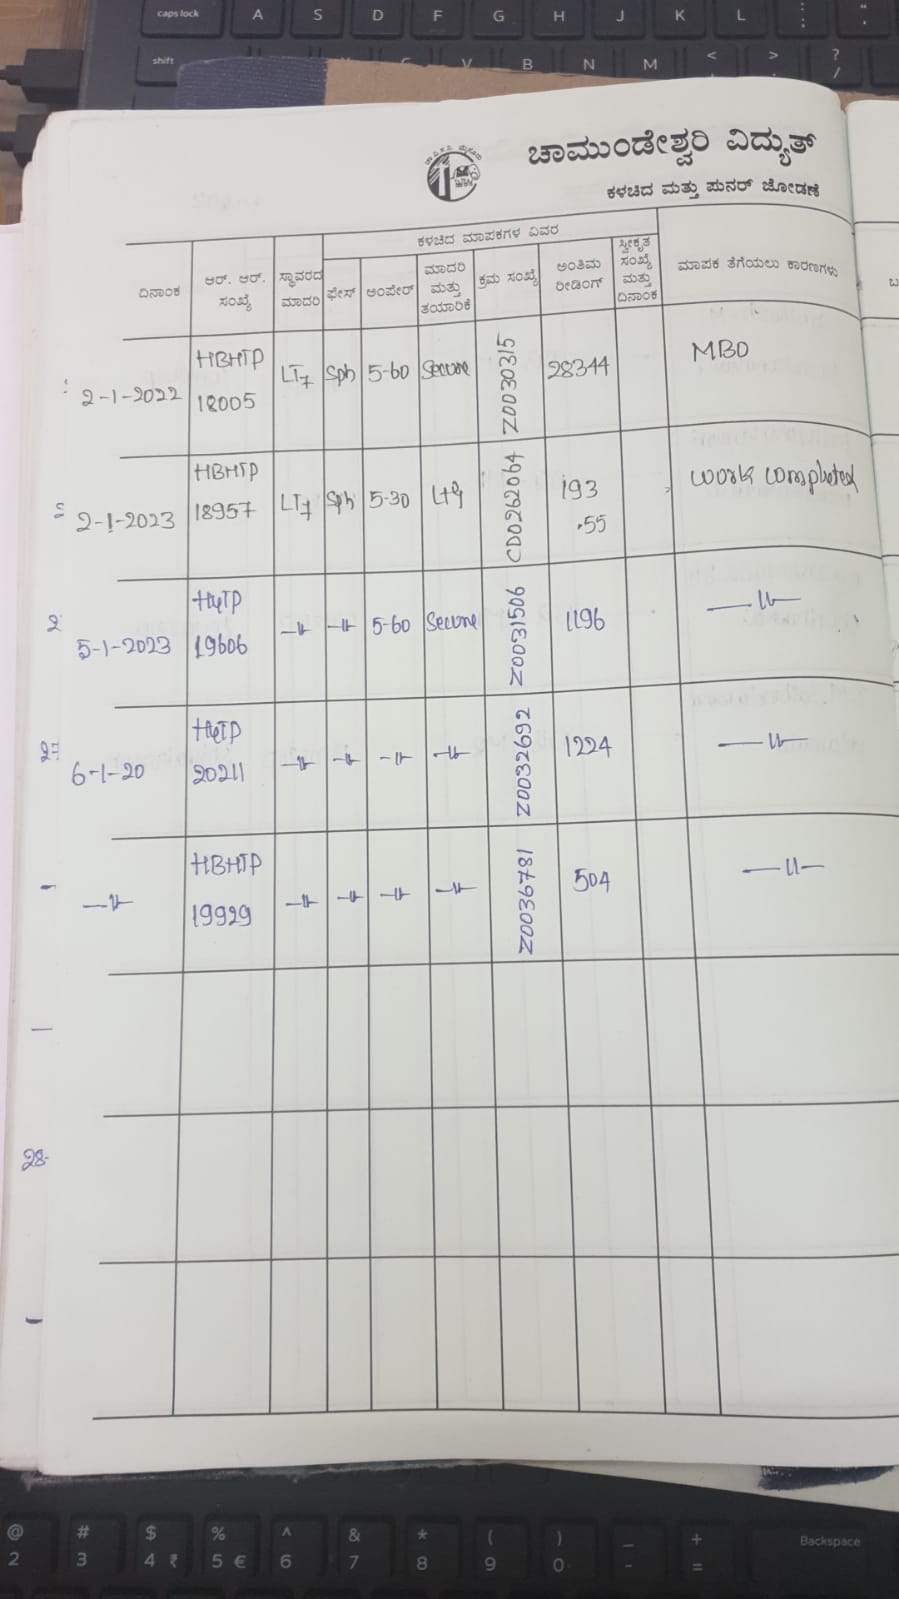 ಚಾಮುಂಡೇಶ್ವರಿ ವಿದ್ಯುತ್
ಕಳಚಿದ ಮತ್ತು ಪುನರ್ ಜೋಡಣೆ
ಕಳಚಿದ ಮಾಪಕಗಳ ವಿವರ
ದಿನಾಂಕ
ಆರ್. ಆರ್.
ಸಂಖ್ಯೆ
ಸ್ಥಾವರದ
ಮಾದರಿ
ಫೇಸ್
ಅಂಪೇರ್
ಮಾದರಿ
ಮತ್ತು
ತಯಾರಿಕೆ
ಕ್ರಮ ಸಂಖ್ಯೆ
ಅಂತಿಮ
ರೀಡಿಂಗ್
ಸ್ವೀಕೃತ
ಸಂಖ್ಯೆ
ಮತ್ತು
ದಿನಾಂಕ
ಮಾಪಕ ತೆಗೆಯಲು ಕಾರಣಗಳು
2-1-2022 HBHTP 18005 LT7 Sph 5-60 Secure Z0030315 28344 MBD
2-1-2023 HBHTP 18957 LT7 Sph 5-30 L+G CD0262064 193 .55 work completed
5-1-2023 HyTP 19606 -〃- -〃- 5-60 Secure Z0031506 1196 -〃-
6-1-20 HyTP 20211 -〃- -〃- -〃- -〃- Z0032692 1224 -〃-
-〃- HBHTP 19929 -〃- -〃- -〃- -〃- Z0036781 504 -〃-
28-
caps lock A S D F G H J K L
shift V B N M < > ? /
@ 2 # 3 $ 4 ₹ % 5 € ^ 6 & 7 * 8 ( 9 ) 0 _ - + = Backspace